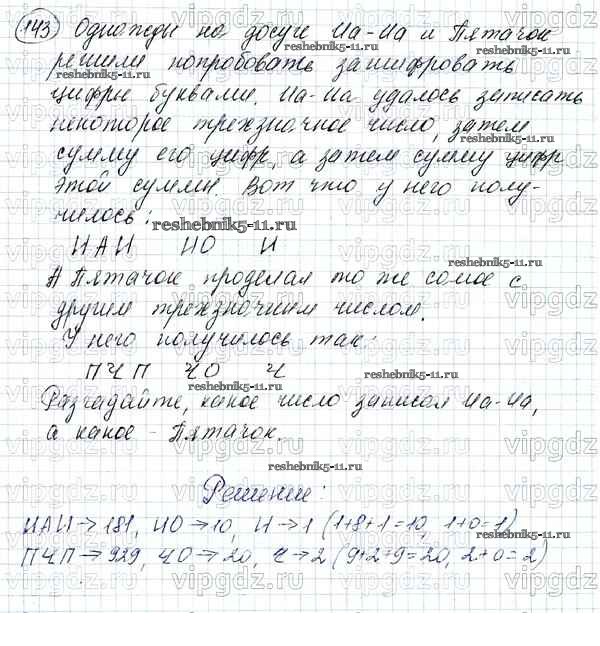 143 Однажды на досуге Иа-Иа и Пятачок
решили попробовать зашифровать
цифры буквами. Иа-Иа удалось записать
некоторое трехзначное число, затем
сумму его цифр, а затем сумму цифр
этой суммы. Вот что у него полу-
чилось:
ИАИ ИО И
А Пятачок проделал то же самое с
другим трехзначным числом.
У него получилось так:
ПЧП ЧО Ч
Разгадайте, какое число записал Иа-Иа,
а какое - Пятачок.
Решение:
ИАИ → 181, ИО → 10, И → 1 (1+8+1=10, 1+0=1)
ПЧП → 929, ЧО → 20, Ч → 2 (9+2+9=20, 2+0=2)
reshebnik5-11.ru
reshebnik5-11.ru
reshebnik5-11.ru
reshebnik5-11.ru
reshebnik5-11.ru
reshebnik5-11.ru
reshebnik5-11.ru
vipgdz.ru